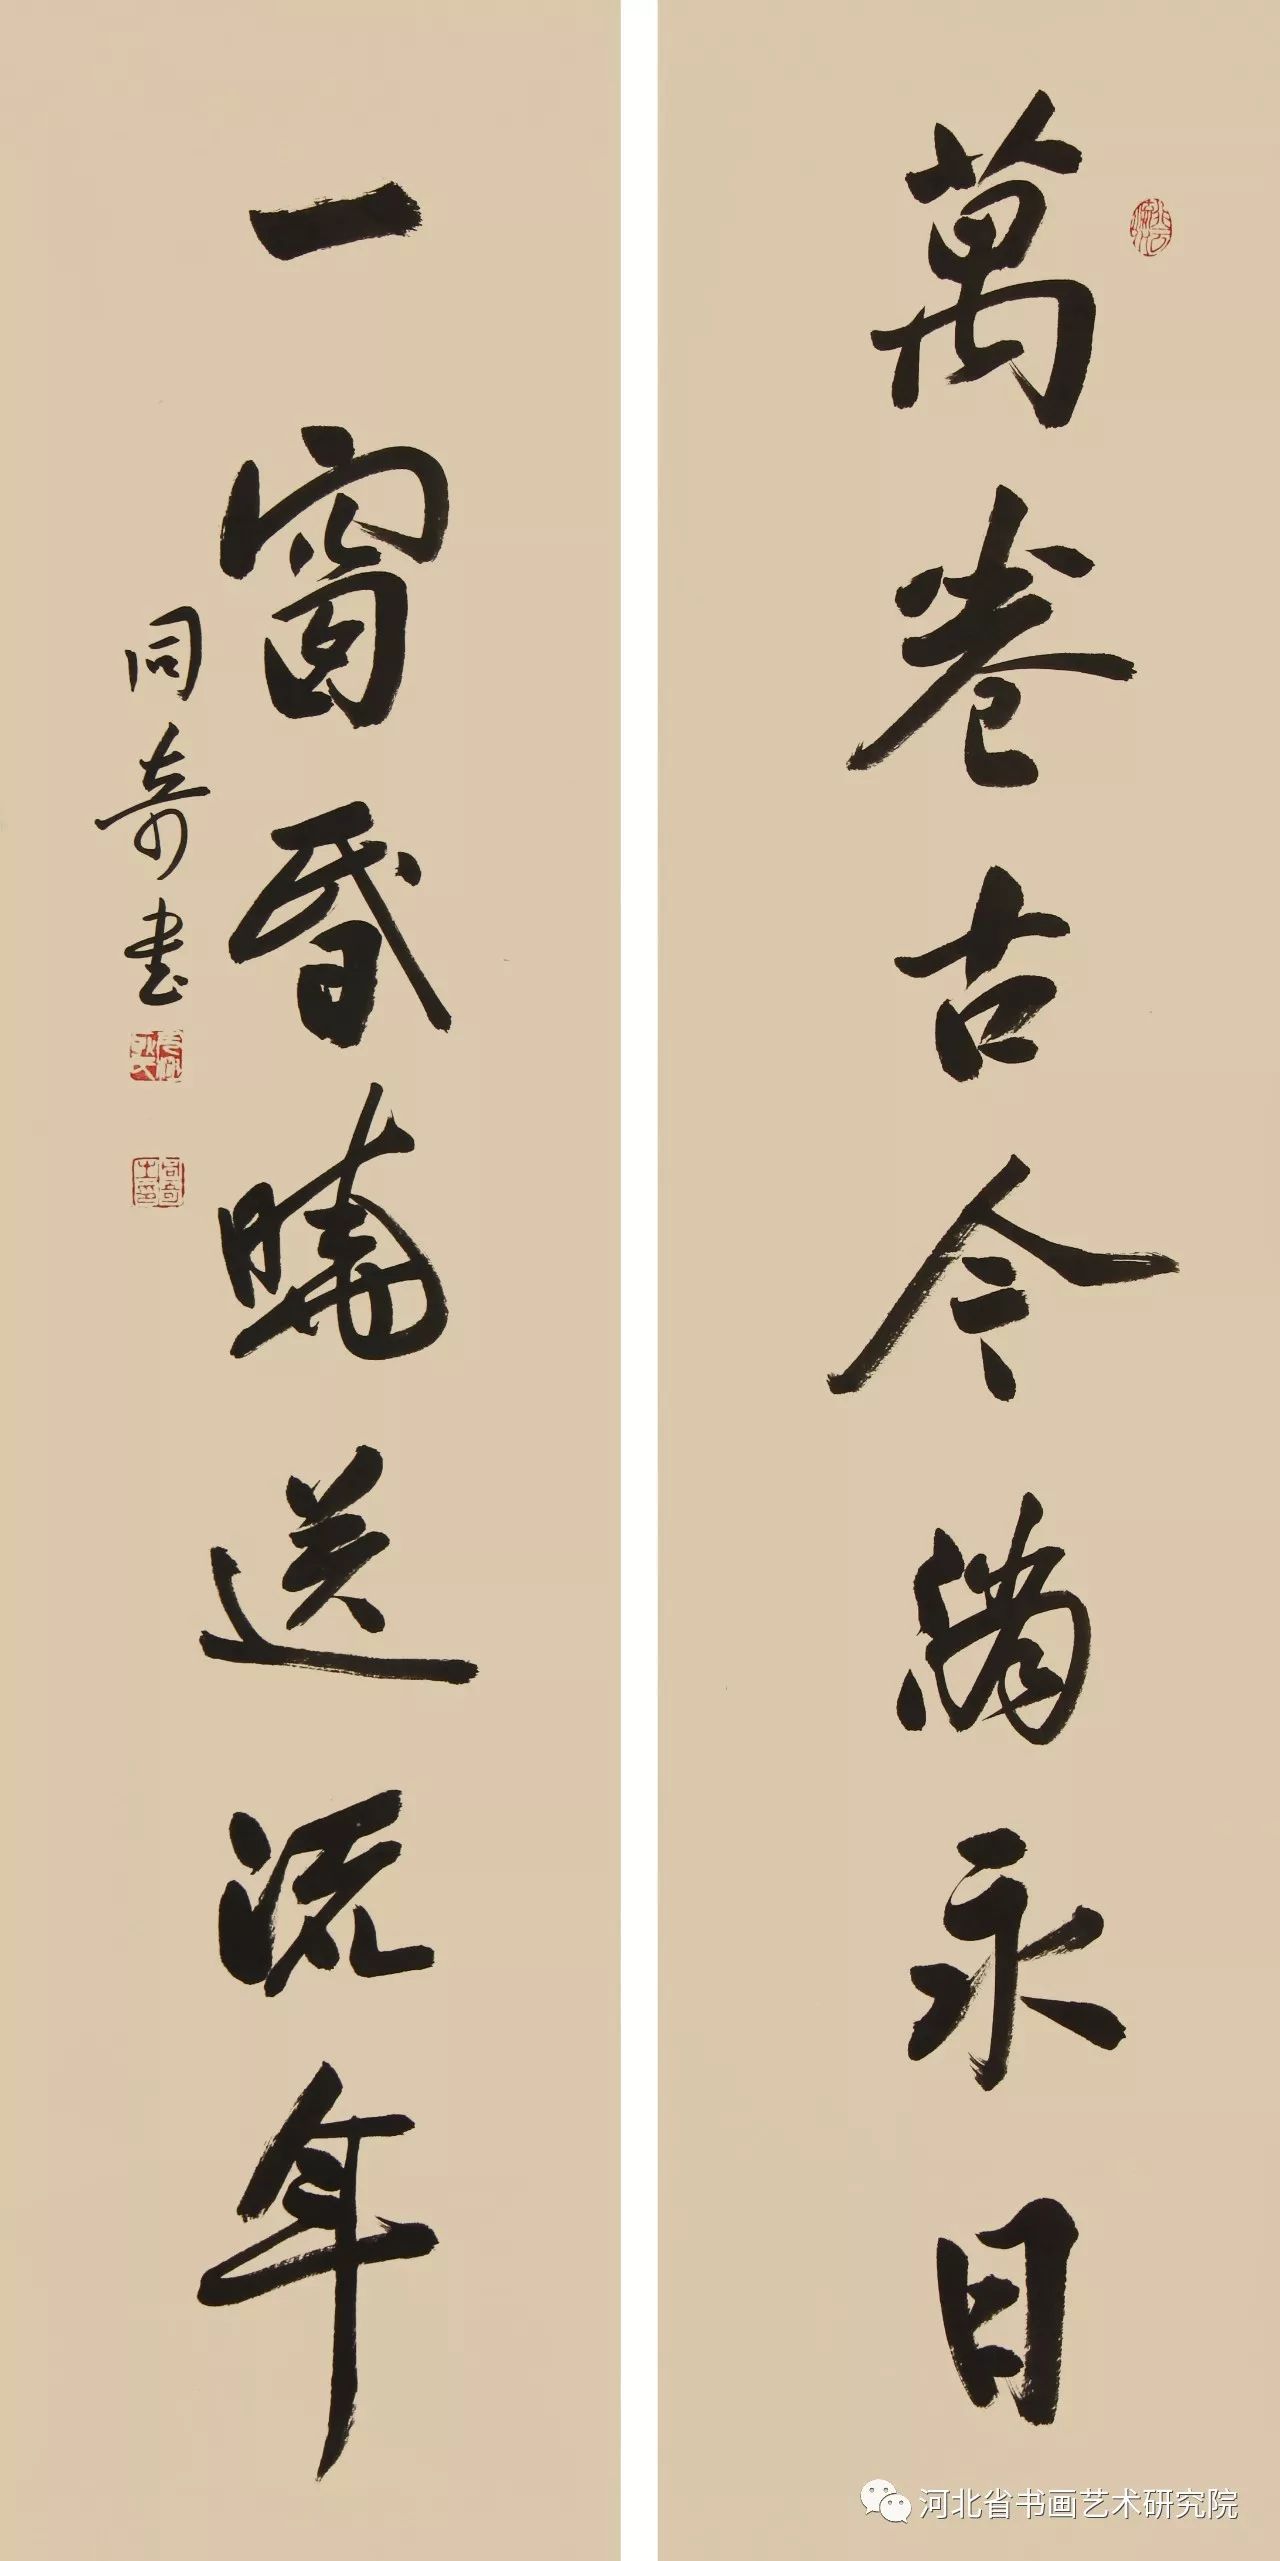 萬卷古今消永日
一窗昏曉送流年
同奇书
河北省书画艺术研究院